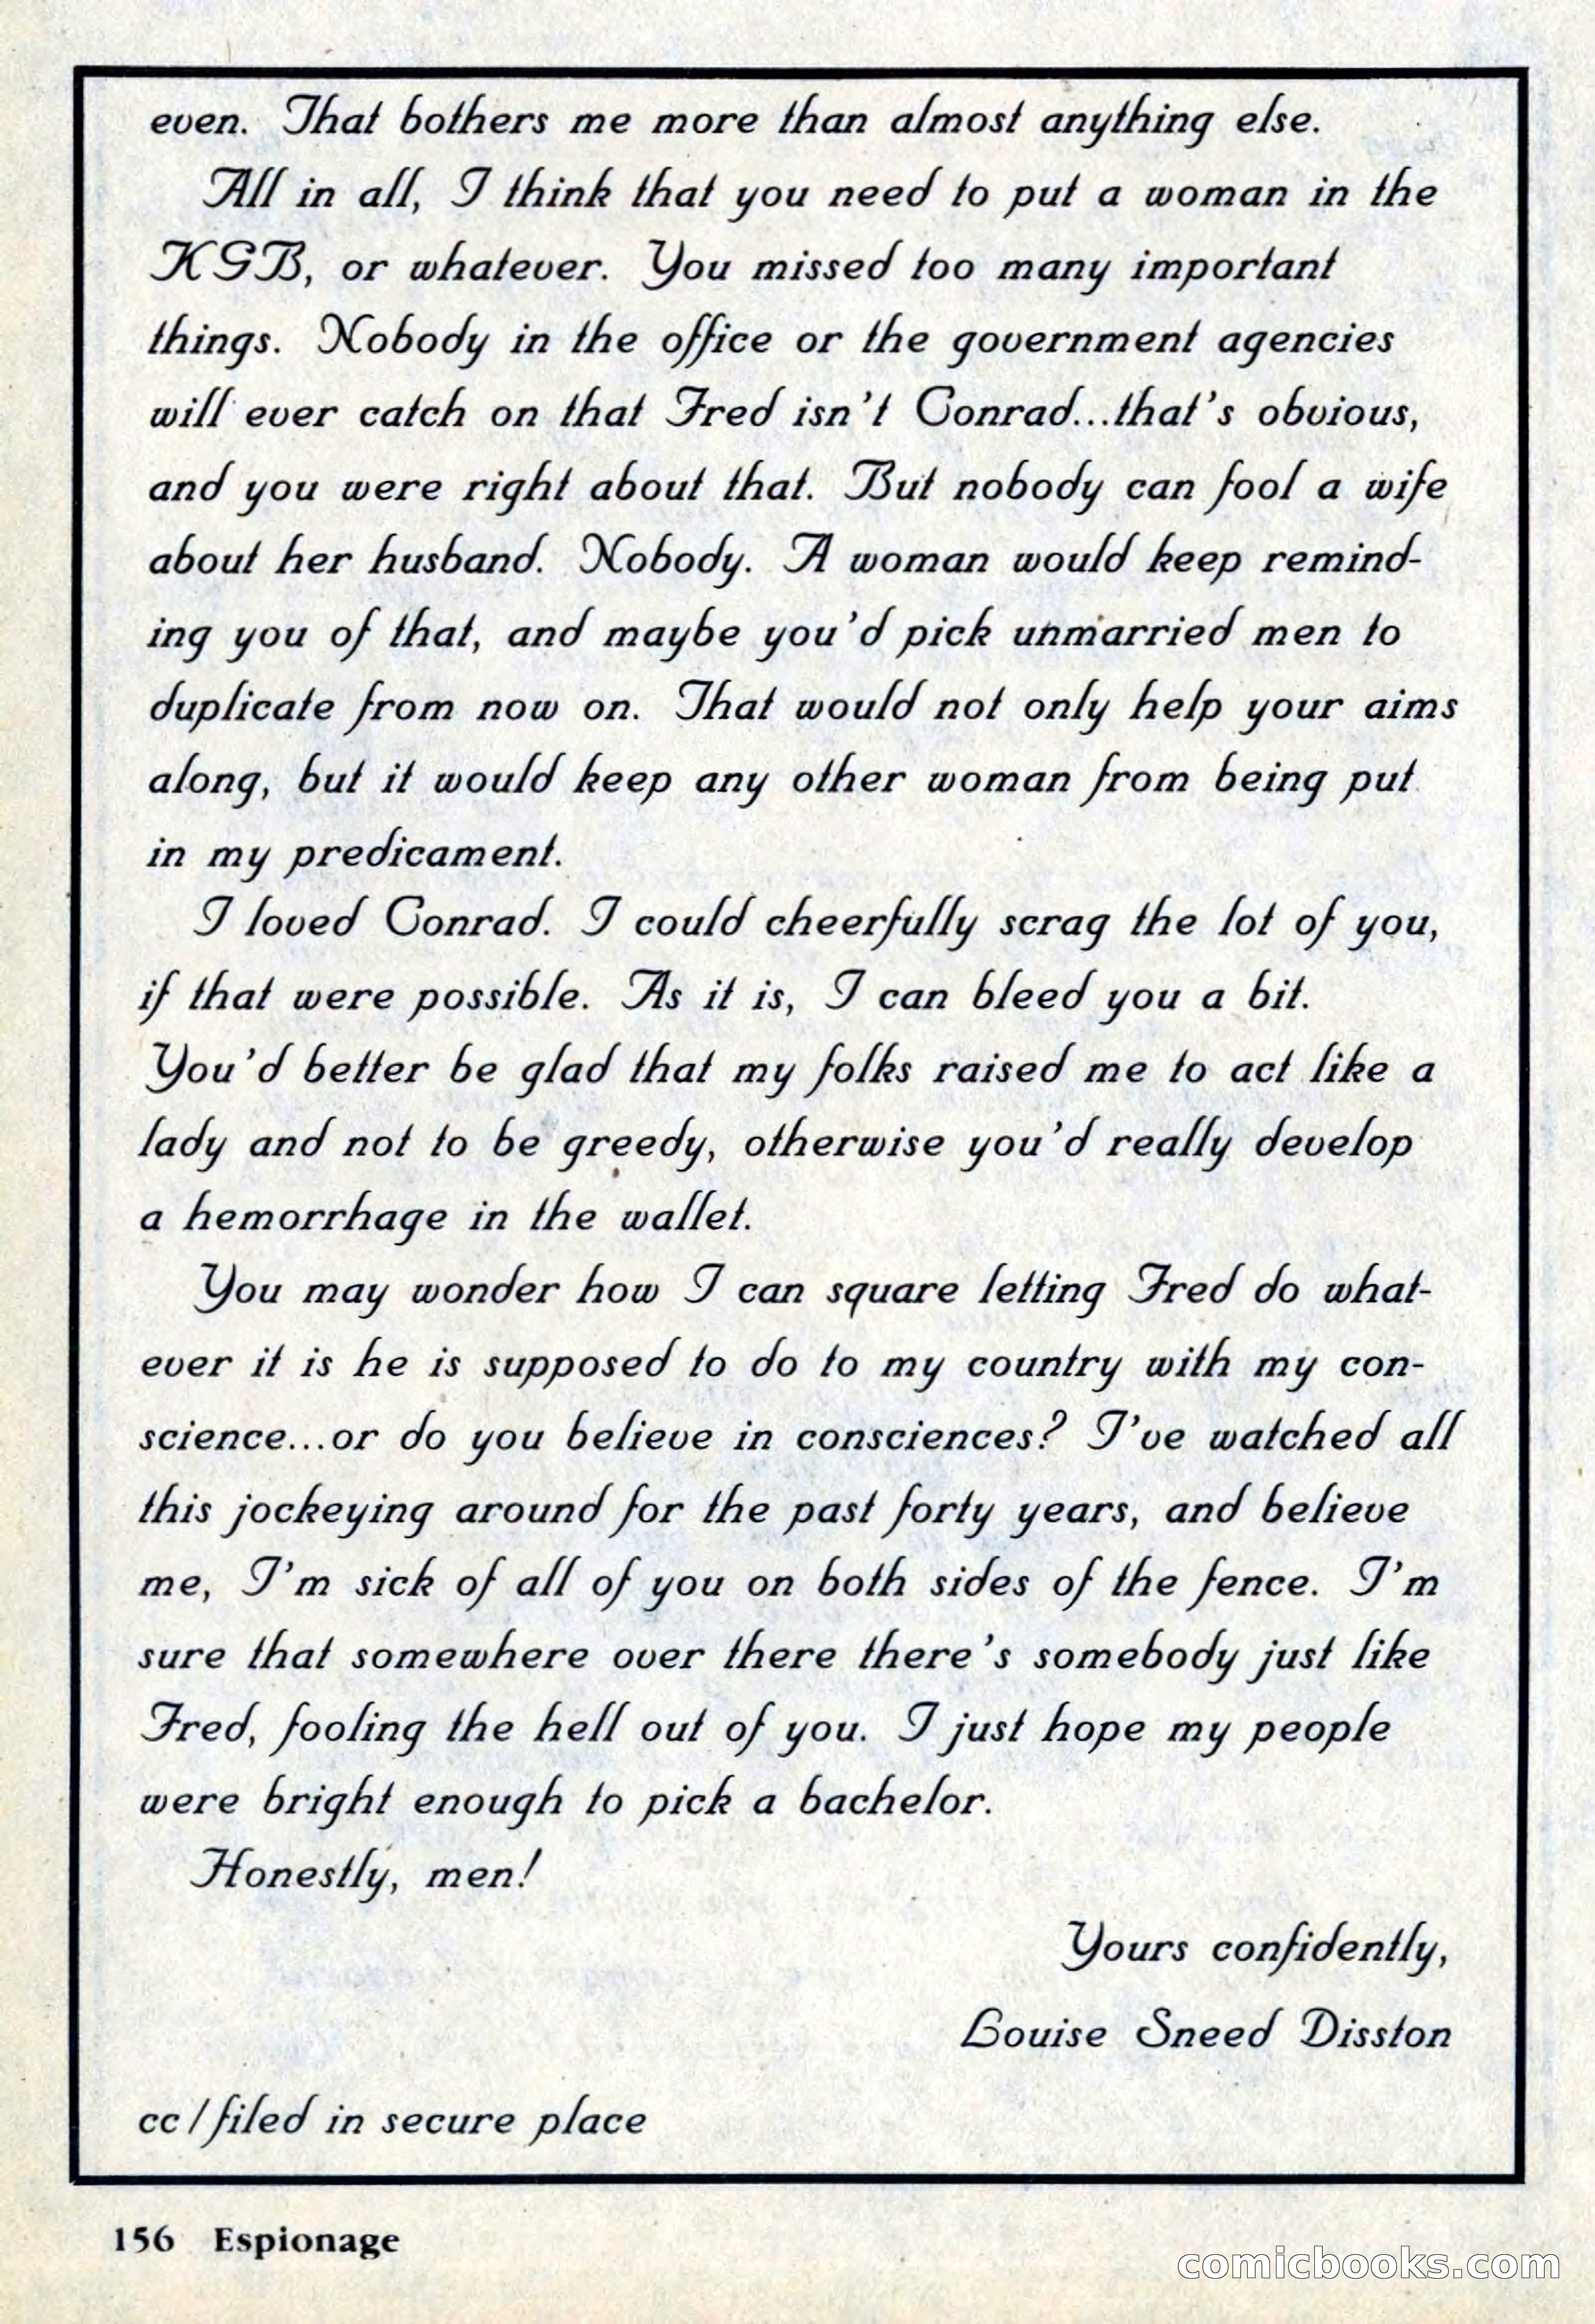 even. That bothers me more than almost anything else.
All in all, I think that you need to put a woman in the
KGB, or whatever. You missed too many important
things. Nobody in the office or the government agencies
will ever catch on that Fred isn't Conrad...that's obvious,
and you were right about that. But nobody can fool a wife
about her husband. Nobody. A woman would keep remind-
ing you of that, and maybe you'd pick unmarried men to
duplicate from now on. That would not only help your aims
along, but it would keep any other woman from being put
in my predicament.
I loved Conrad. I could cheerfully scrag the lot of you,
if that were possible. As it is, I can bleed you a bit.
You'd better be glad that my folks raised me to act like a
lady and not to be greedy, otherwise you'd really develop
a hemorrhage in the wallet.
You may wonder how I can square letting Fred do what-
ever it is he is supposed to do to my country with my con-
science...or do you believe in consciences? I've watched all
this jockeying around for the past forty years, and believe
me, I'm sick of all of you on both sides of the fence. I'm
sure that somewhere over there there's somebody just like
Fred, fooling the hell out of you. I just hope my people
were bright enough to pick a bachelor.
Honestly, men!
Yours confidently,
Louise Sneed Disston
cc/filed in secure place
156 Espionage
comicbooks.com